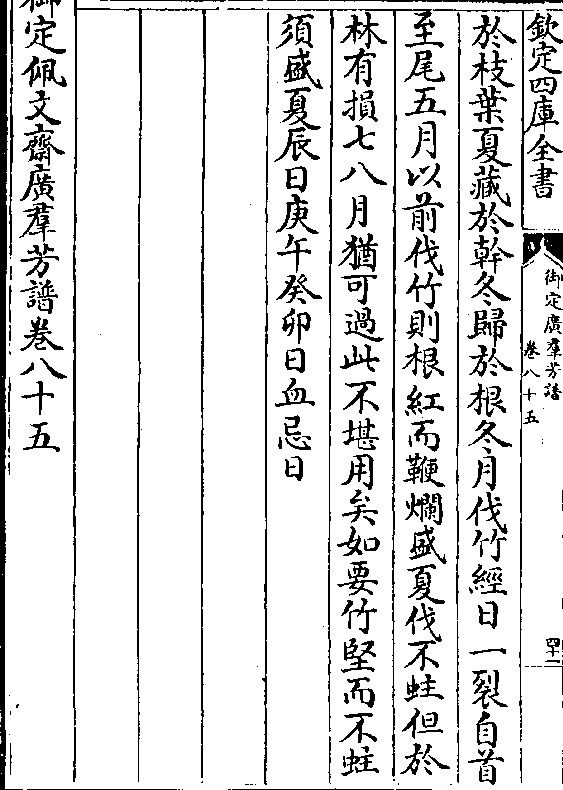 欽定四庫全書
御定廣羣芳譜
卷八十五
四十一
於枝葉夏藏於幹冬歸於根冬月伐竹經日一裂自首
至尾五月以前伐竹則根紅而鞭爛盛夏伐不蛀但於
林有損七八月猶可過此不堪用矣如要竹堅而不蛀
須盛夏辰日庚午癸卯日血忌日
御定佩文齋廣羣芳譜卷八十五